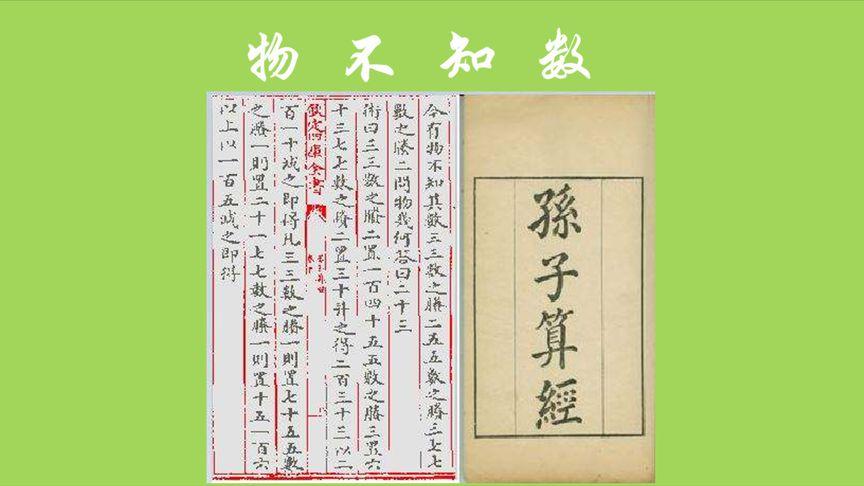 物不知数
今有物不知其數三三數之賸二五五數之賸三七七
數之賸二問物幾何答曰二十三
術曰三三數之賸二置一百四十五五數之賸三置六
十三七七數之賸二置三十并之得二百三十三以二
欽定四庫全書
百一十減之即得凡三三數之賸一則置七十五五數
之賸一則置二十一七七數之賸一則置十五一百六
以上以一百五減之即得
孫子算經